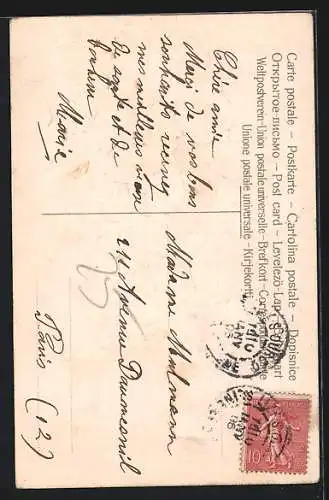 Carte postale – Postkarte – Cartolina postale – Dopisnice
Открытое письмо – Post card – Levelező-Lap
Weltpostverein-Union postale universelle – Brefkort – Cor
Unione postale universale – Kirjekortti
Chère amie
Merci de vos bons
souhaits recevez
mes meilleurs vœux
de santé et de
bonheur
Marie
Madame
21 Avenue Daumesnil
Paris (12)
10